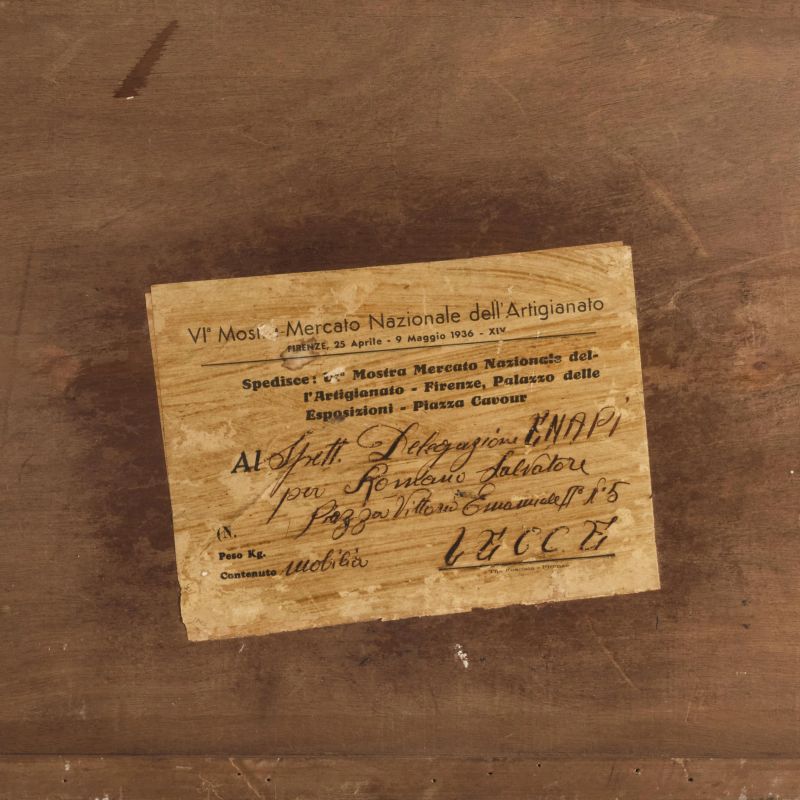 VIª Mostra-Mercato Nazionale dell'Artigianato
FIRENZE, 25 Aprile - 9 Maggio 1936 - XIV
Spedisce: VIª Mostra Mercato Nazionale del-
l'Artigianato - Firenze, Palazzo delle
Esposizioni - Piazza Cavour
Al Spett. Delegazione ENAPI
per Romano Salvatore
Piazza Vittorio Emanuele IIº Nº 5
(N.
Peso Kg.
LECCE
Contenuto mobilia